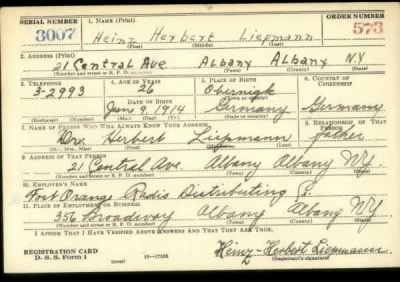 SERIAL NUMBER 1. NAME (Print) ORDER NUMBER
3007 Heinz Herbert Liepmann 573
(First) (Middle) (Last)
2. ADDRESS (Print)
21 Central Ave Albany Albany N.Y.
(Number and street or R. F. D. number) (Town) (County) (State)
3. TELEPHONE 4. AGE IN YEARS 5. PLACE OF BIRTH 6. COUNTRY OF CITIZENSHIP
3-2993 26 Obernigk
DATE OF BIRTH (Town or county)
Jan 9, 1914 Germany Germany
(Exchange) (Number) (Mo.) (Day) (Yr.) (State or country)
7. NAME OF PERSON WHO WILL ALWAYS KNOW YOUR ADDRESS 8. RELATIONSHIP OF THAT PERSON
Dr. Herbert Liepmann father
(Mr., Mrs., Miss) (First) (Middle) (Last)
9. ADDRESS OF THAT PERSON
21 Central Ave. Albany Albany N.Y.
(Number and street or R. F. D. number) (Town) (County) (State)
10. EMPLOYER'S NAME
Fort Orange Radio Distributing
11. PLACE OF EMPLOYMENT OR BUSINESS
356 Broadway Albany Albany N.Y.
(Number and street or R. F. D. number) (Town) (County) (State)
I AFFIRM THAT I HAVE VERIFIED ABOVE ANSWERS AND THAT THEY ARE TRUE.
REGISTRATION CARD Heinz-Herbert Liepmann
D. S. S. Form 1 (over) (Registrant's signature)